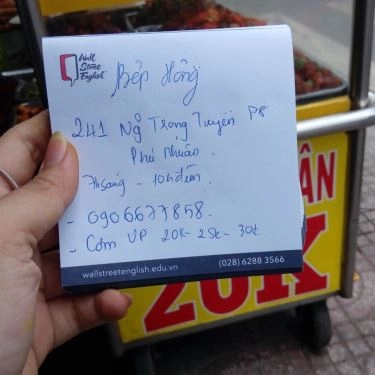 Wall
Street
English
Bếp Hồng
241 Ng Trọng Tuyển P8
Phú Nhuận.
7h sáng - 10h đêm.
- 0906677858.
- Cơm VP 20k - 25k - 30k
wallstreetenglish.edu.vn (028) 6288 3566
ÂN
20K